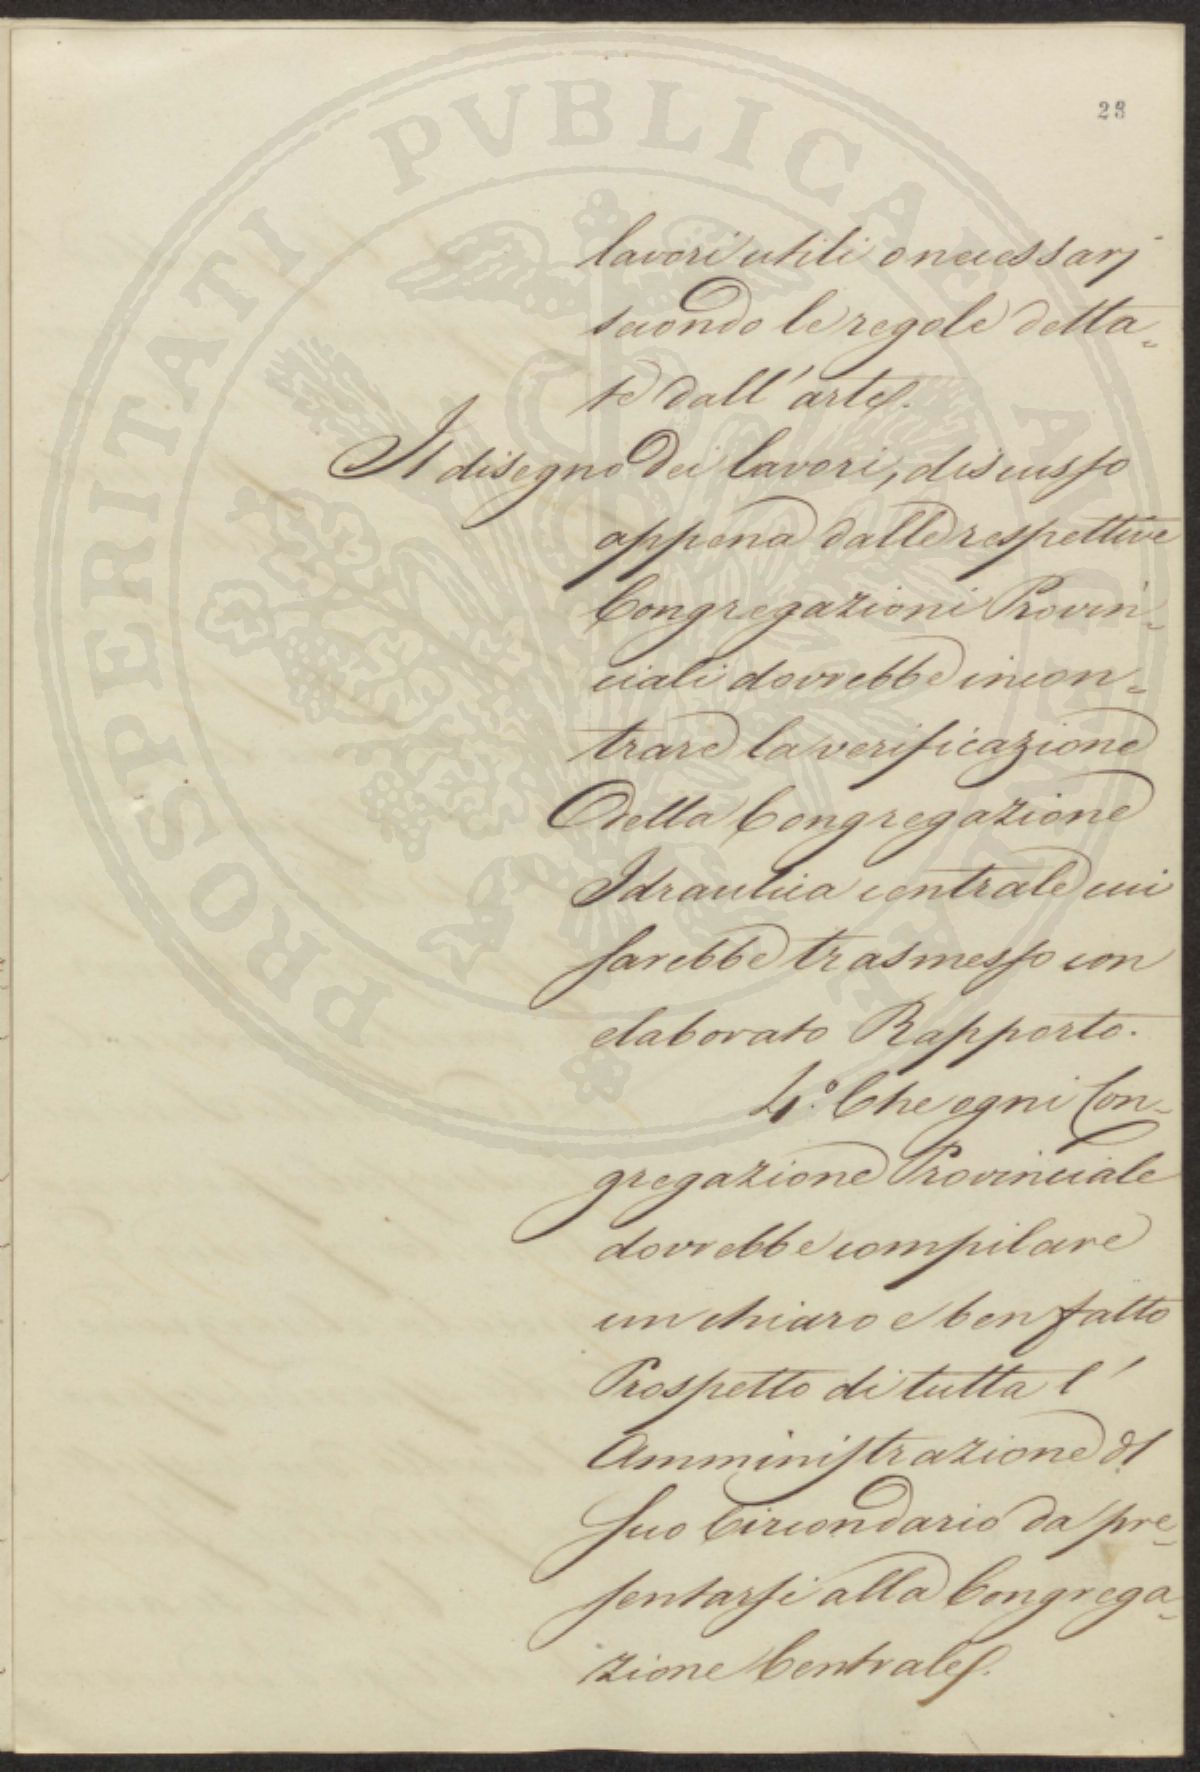 23
lavori utili o necessarj
secondo le regole detta=
te dall'arte.
Il disegno dei lavori, discusso
appena dalle respettive
Congregazioni Provin=
ciali dovrebbe incon=
trare la verificazione
della Congregazione
Idraulica centrale cui
sarebbe trasmesso con
elaborato Rapporto.
4.° Che ogni Con=
gregazione Provinciale
dovrebbe compilare
un chiaro e ben fatto
Prospetto di tutta l'
Amministrazione del
suo Circondario da pre=
sentarsi alla Congrega=
zione Centrale.
PROSPERITATI PVBLICAE AVGENDAE